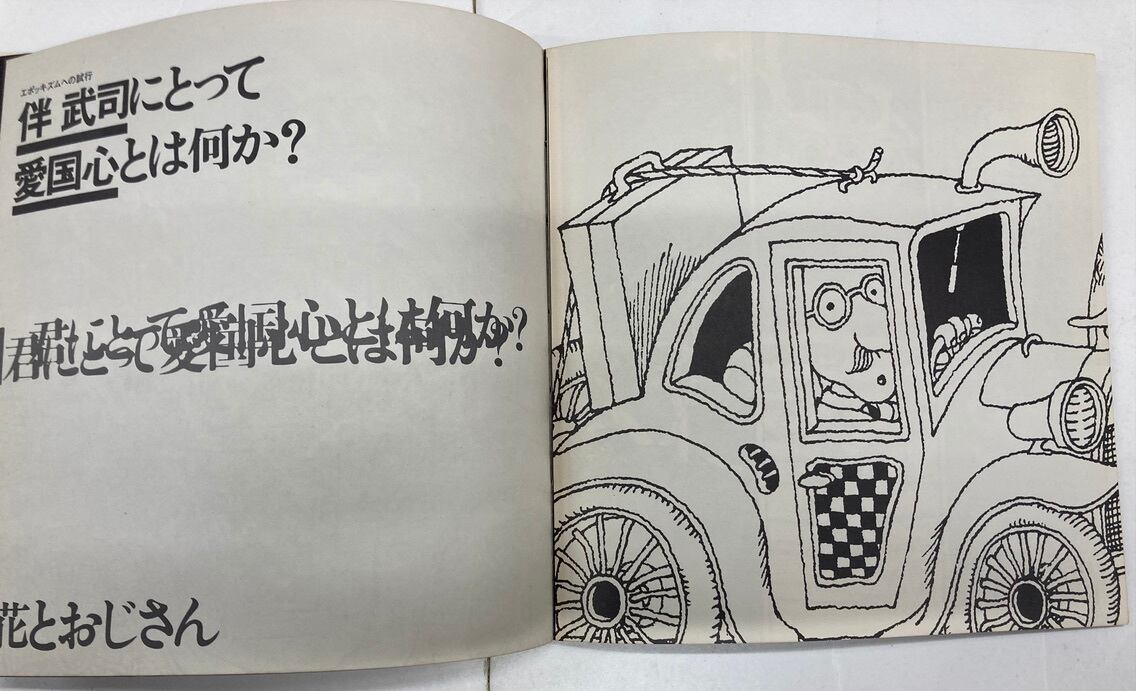 エポッキズムへの試行
伴 武司にとって
愛国心とは何か?
君にとって愛国心とは何か?
花とおじさん